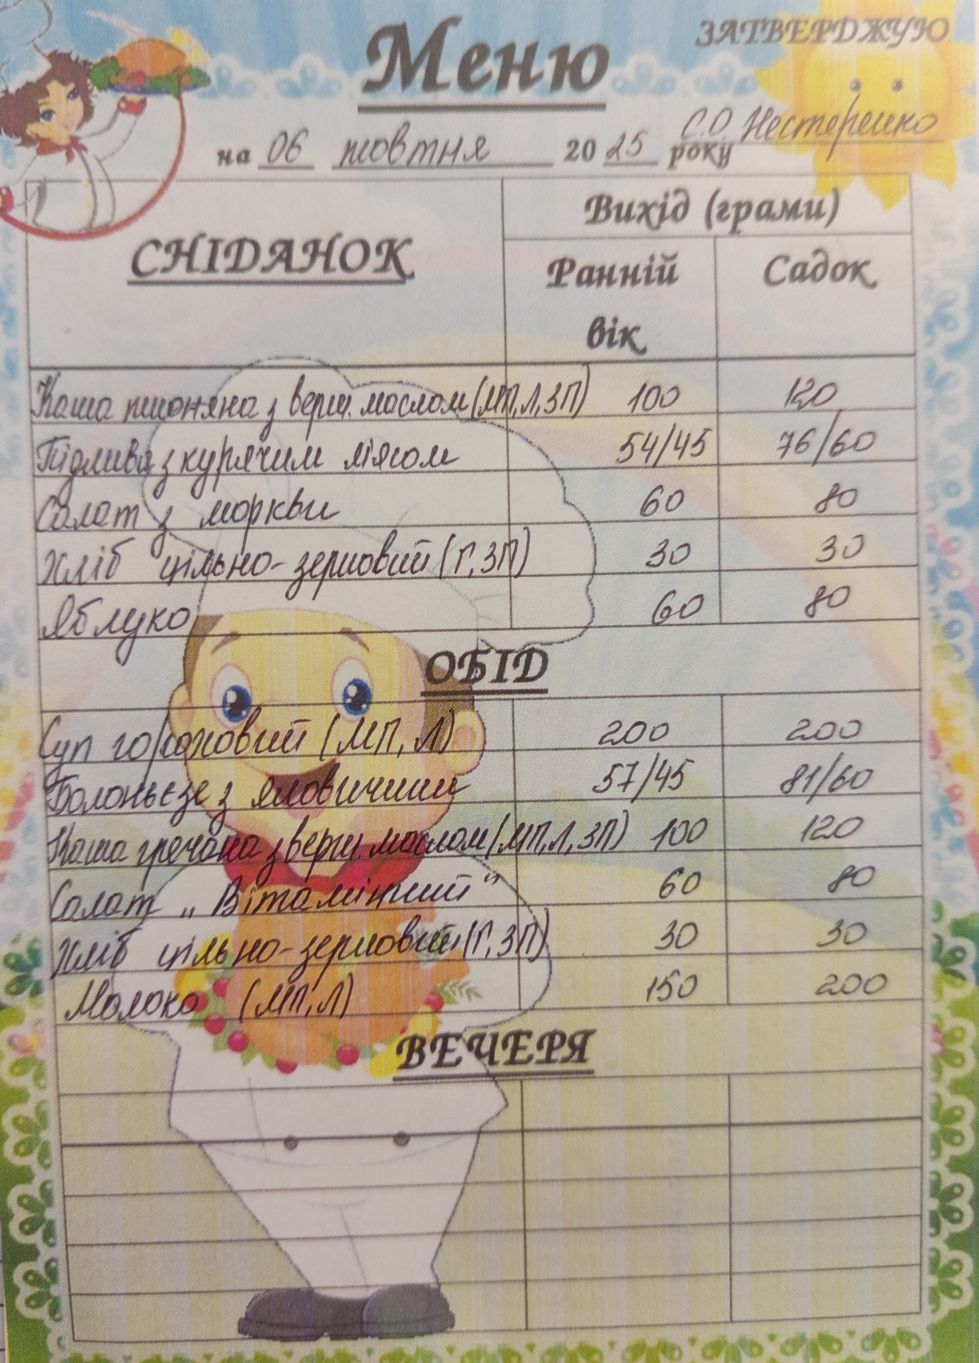 ЗАТВЕРДЖУЮ
Меню
С.О Нестеренко
на 06 жовтня 2025 року
СНІДАНОК
Вихід (грами)
Ранній вік
Садок
Каша пшоняна з верш. маслом (МП, Л, ЗП) 100 120
Підлива з курячим м'ясом 54/45 76/60
Салат з моркви 60 80
Хліб цільно-зерновий (Г, ЗП) 30 30
Яблуко 60 80
ОБІД
Суп гороховий (МП, Л) 200 200
Болоньєзе з яловичини 57/45 81/60
Каша гречана з верш. маслом (МП, Л, ЗП) 100 120
Салат „Вітамінний" 60 80
Хліб цільно-зерновий (Г, ЗП) 30 30
Молоко (МП, Л) 150 200
ВЕЧЕРЯ